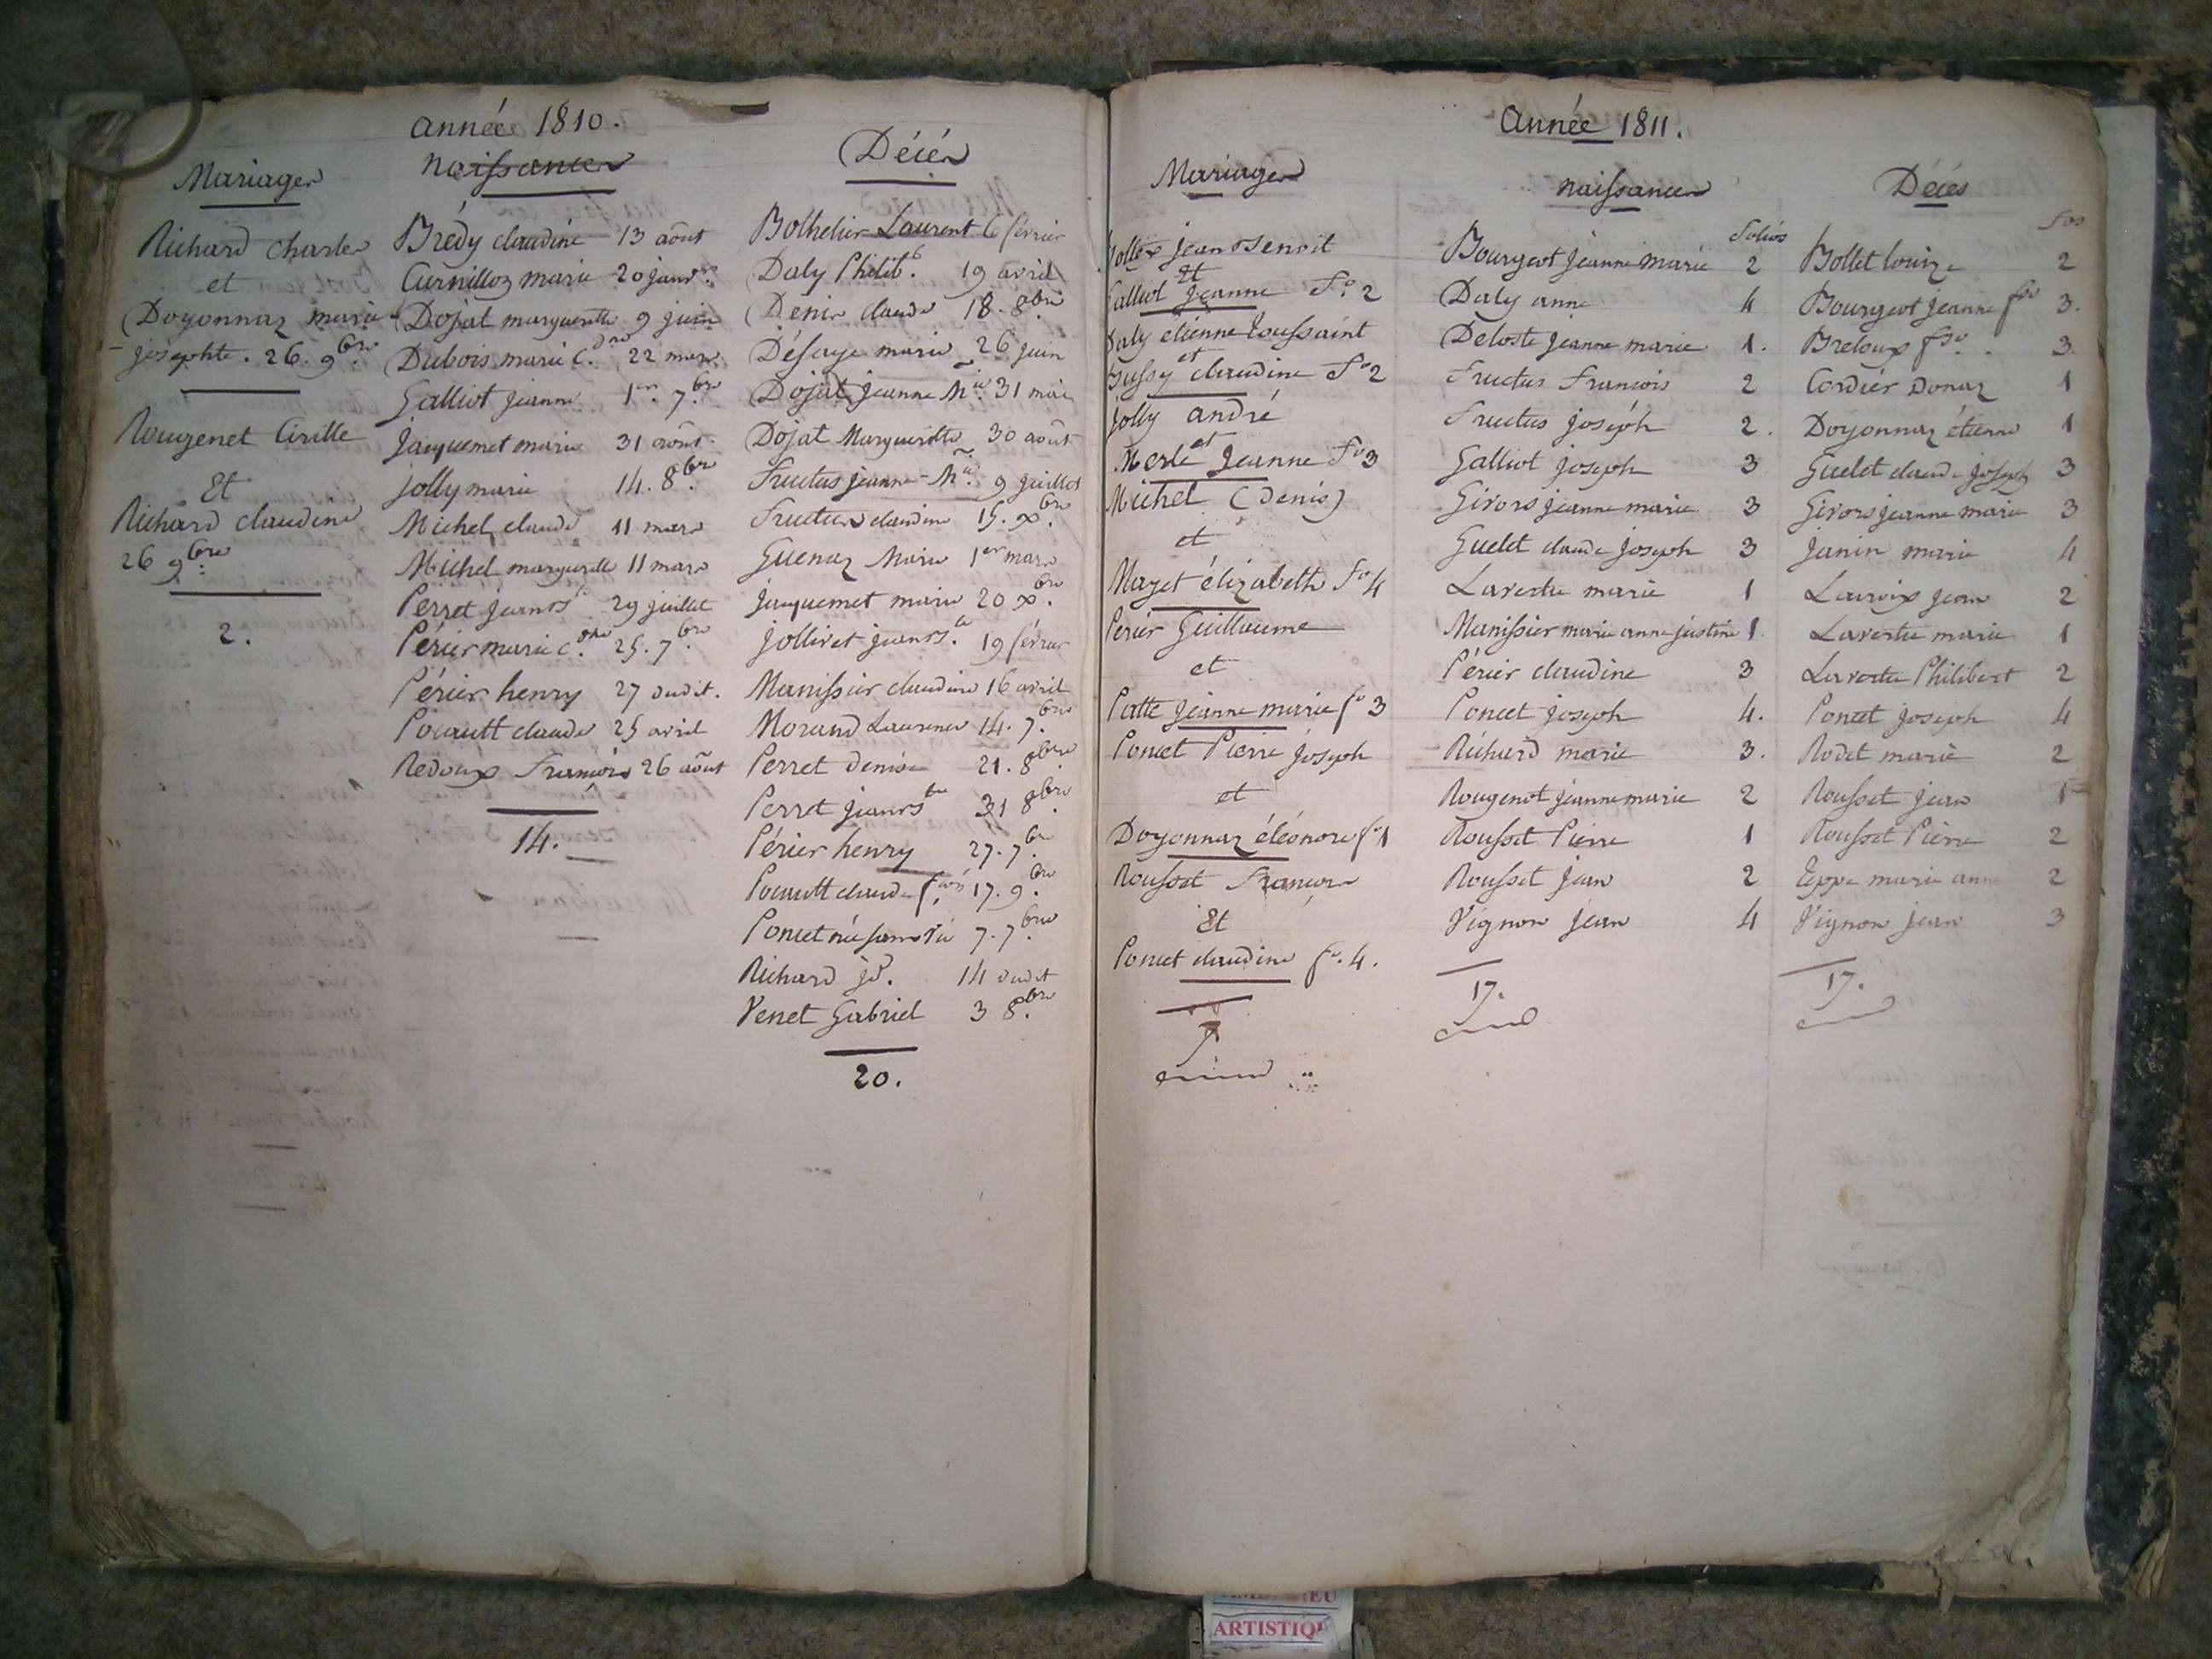 année 1810.
Mariages
Richard charles
et
Doyonnaz marie
josephte. 26. 9bre
Rougenet Cirille
Et
Richard claudine
26 9bre
2.
naissances
Brédy claudine 13 août
Curnilloz marie 20 janv.
Dojat marguerite 9 juin
Dubois marie C.dne 22 mars
Galliot jeanne 1er. 7bre
Jacquemet marie 31 août
jolly marie 14. 8bre
Michel claude 11 mars
Michel marguerite 11 mars
Perret jean 29 juillet
Périer marie c. 25. 7bre
Périer henry 27 dudit.
Pocautt claude 25 avril
Redoux François 26 août
14.
Décés
Bothelier Laurent 6 février
Daly Philib. 19 avril
Denis claude 18. 8bre
Désaye marie 26 juin
Dojat jeanne Mie 31 mai
Dojat Marguerite 30 août
Fructus jeanne Mie 9 juillet
Fructus claudine 15. xbre
Guenaz Marie 1er mars
jacquemet marie 20 xbre
jollivet jean 19 février
Manissier claudine 16 avril
Morand Laurence 14. 7bre
Perret denise 21. 8bre
Perret jean 31 8bre
Périer henry 27. 7bre
Pocautt claude 17. 9bre
Poncet né sans vie 7. 7bre
Richard jh. 14 dudit
Venet Gabriel 3 8bre
20.
Année 1811.
Mariages
jean Benoit
Et
Galliot jeanne fo. 2
Daly etienne toussaint
et
claudine fo 2
jolly andré
et
Merle jeanne fo 3
Michel (Denis)
et
Mazet élizabeth fo 4
Perier Guillaume
et
Patte jeanne marie fo 3
Poncet Pierre joseph
et
Doyonnaz éléonore fo 1
Rousset François
Et
Poncet claudine fo. 4.
7
naissances
folios
Bourgeot jeanne marie 2
Daly anne 4
Deloste jeanne marie 1.
Fructus François 2
Fructus joséph 2.
Galliot joseph 3
Givors jeanne marie 3
Guelet claude joseph 3
Lavertu marie 1
Manissier marie anne justine 1.
Périer claudine 3
Poncet joseph 4.
Richard marie 3.
Rougenot jeanne marie 2
Rousset Pierre 1
Rousset jean 2
Vignon jean 4
17.
Décès
fos
Bollet louize 2
Bourgeot jeanne 3.
Breloux 3.
Cordier Donaz 1
Doyonnaz étienne 1
Guelet claude joseph 3
Givors jeanne marie 3
Janin marie 4
Lacroix jean 2
Lavertu marie 1
Lavertu Philibert 2
Poncet joseph 4
Rodet marie 2
Rousset jean 1
Rousset Pierre 2
Teppe marie anne 2
Vignon jean 3
17.
ARTISTIQU